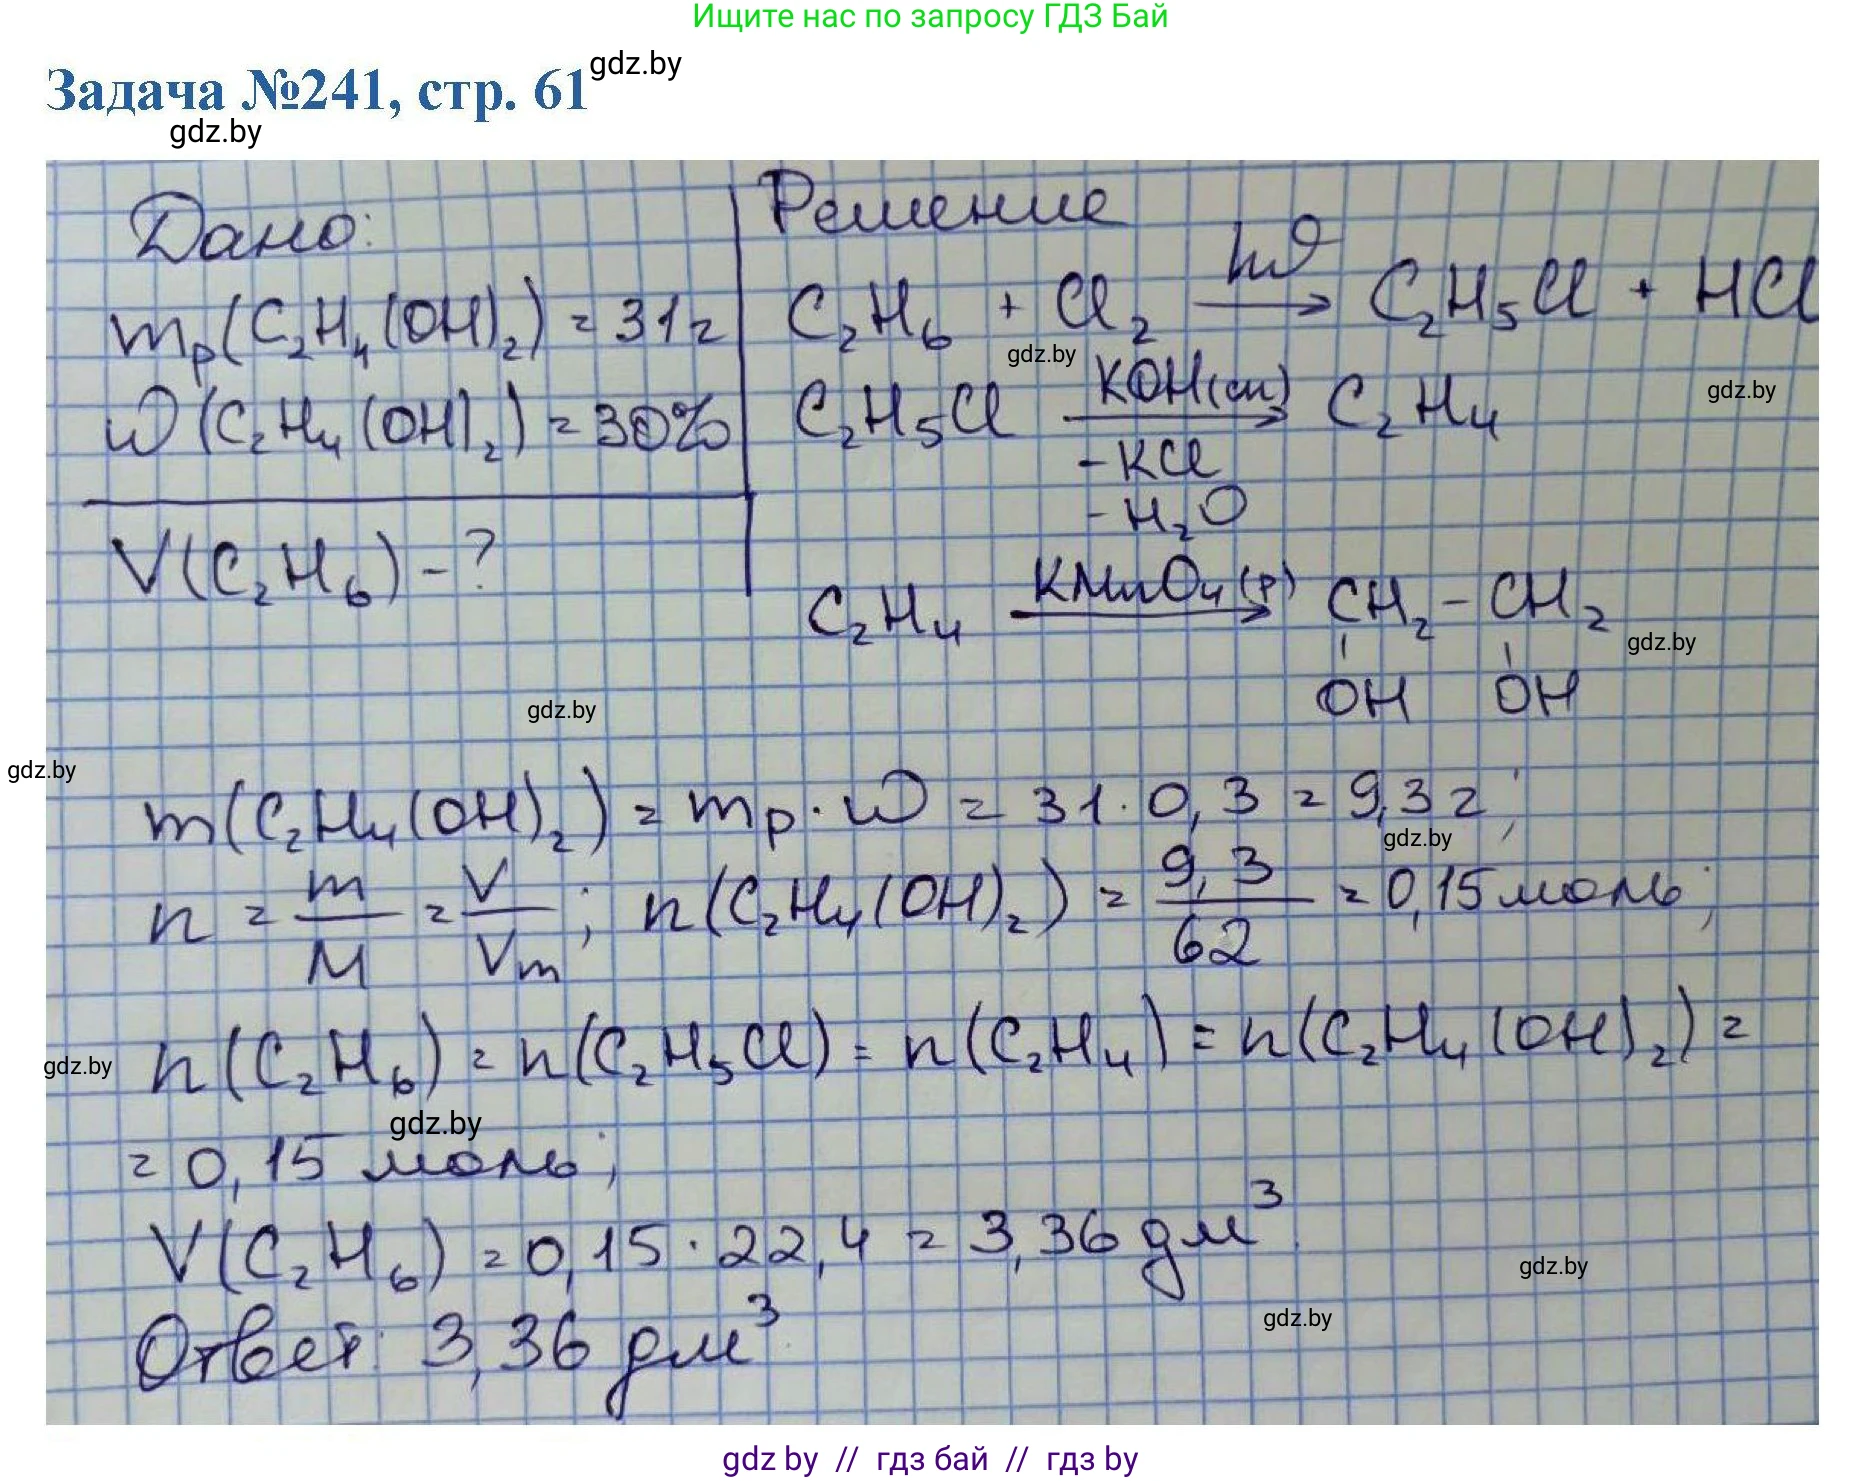 Ищите нас по запросу ГДЗ Бай
Задача №241, стр. 61
gdz.by
gdz.by
Дано:
mр(C₂H₄(OH)₂) = 31 г
w(C₂H₄(OH)₂) = 30%
V(C₂H₆) - ?
Решение
C₂H₆ + Cl₂ hν→ C₂H₅Cl + HCl
gdz.by
C₂H₅Cl KOH(сп)→ C₂H₄
gdz.by
-KCl
-H₂O
C₂H₄ KMnO₄(р)→ CH₂ - CH₂
gdz.by
OH OH
gdz.by
gdz.by
m(C₂H₄(OH)₂) = mр · w = 31 · 0,3 = 9,3 г;
gdz.by
n = m/M = V/Vm; n(C₂H₄(OH)₂) = 9,3/62 = 0,15 моль;
n(C₂H₆) = n(C₂H₅Cl) = n(C₂H₄) = n(C₂H₄(OH)₂) =
gdz.by
gdz.by
= 0,15 моль;
V(C₂H₆) = 0,15 · 22,4 = 3,36 дм³.
gdz.by
Ответ: 3,36 дм³.
gdz.by
gdz by // гдз бай // гдз by